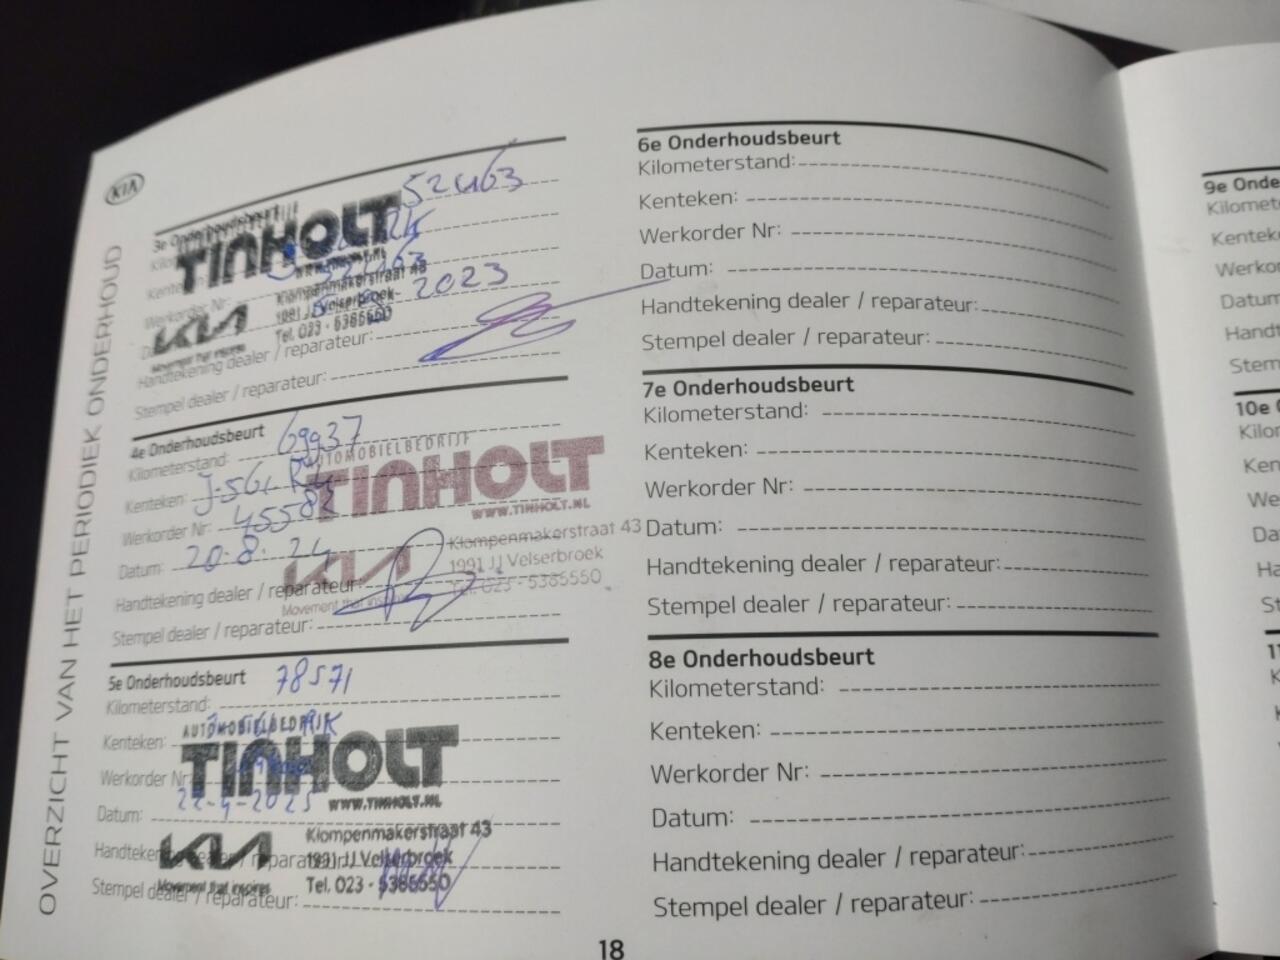 KIA
OVERZICHT VAN HET PERIODIEK ONDERHOUD
3e Onderhoudsbeurt
52463
TINHOLT
Kenteken:
Werkorder Nr:
2023
KIA
Movement that inspires
Klompenmakerstraat 43
1991 JJ Velserbroek
Tel. 023 - 5385550
Handtekening dealer / reparateur:
Stempel dealer / reparateur:
4e Onderhoudsbeurt
Kilometerstand: 69937
Kenteken: J-561-RK
Werkorder Nr: 45582
Datum: 20-8-24
AUTOMOBIELBEDRIJF
TINHOLT
WWW.TINHOLT.NL
KIA
Movement that inspires
Klompenmakerstraat 43
1991 JJ Velserbroek
Tel. 023 - 5385550
Handtekening dealer / reparateur:
Stempel dealer / reparateur:
5e Onderhoudsbeurt
Kilometerstand: 78571
Kenteken:
Werkorder Nr
Datum:
AUTOMOBIELBEDRIJF
TINHOLT
WWW.TINHOLT.NL
KIA
Movement that inspires
Klompenmakerstraat 43
1991 JJ Velserbroek
Tel. 023 - 5385550
Handtekening dealer / reparateur:
Stempel dealer / reparateur:
6e Onderhoudsbeurt
Kilometerstand:
Kenteken:
Werkorder Nr:
Datum:
Handtekening dealer / reparateur:
Stempel dealer / reparateur:
7e Onderhoudsbeurt
Kilometerstand:
Kenteken:
Werkorder Nr:
Datum:
Handtekening dealer / reparateur:
Stempel dealer / reparateur:
8e Onderhoudsbeurt
Kilometerstand:
Kenteken:
Werkorder Nr:
Datum:
Handtekening dealer / reparateur:
Stempel dealer / reparateur:
18
9e Onde
Kilomet
Kenteke
Werko
Datum
Handt
Stem
10e
Kilo
Ken
We
Da
Ha
St
11